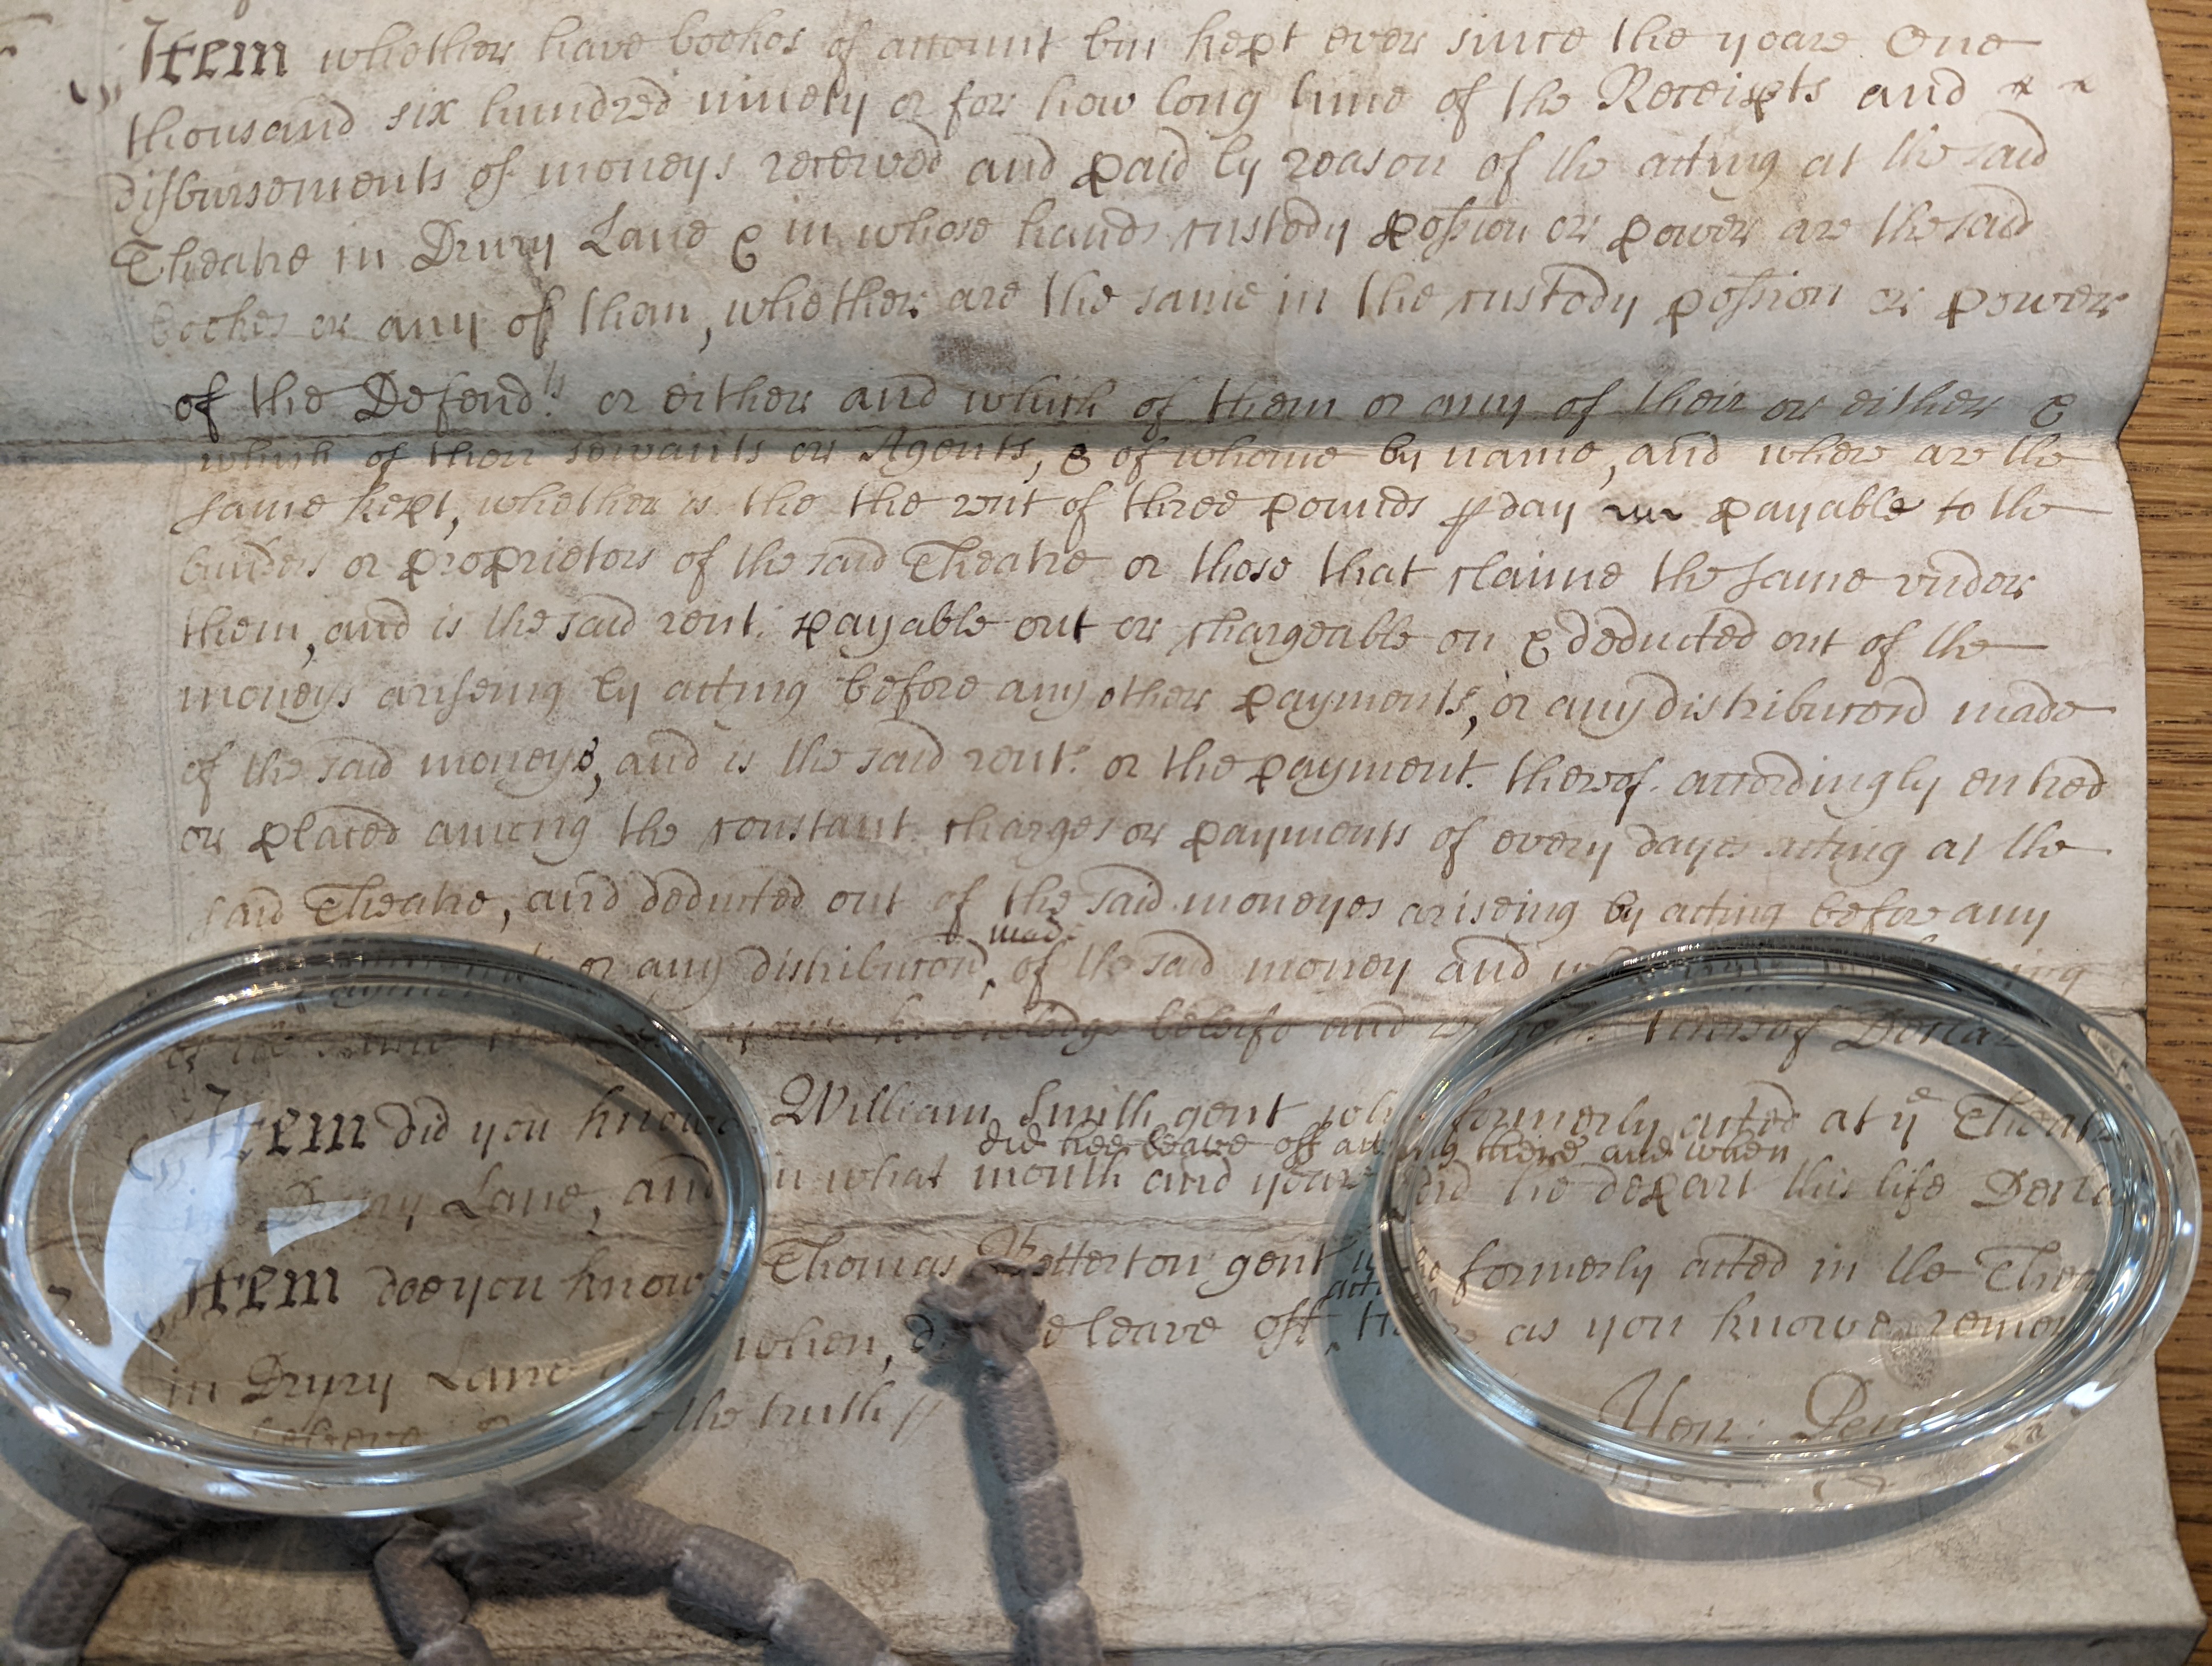 Item whether have bookes of account bin kept ever since the yeare One
thousand six hundred ninety or for how long time of the Receipts and
disbursements of moneys received and paid by reason of the acting at the said
Theatre in Drury Lane & in whose hands custody possion or power are the said
bookes or any of them, whether are the same in the custody possion or power
of the Defend.ts or either and which of them or any of their or either &
which of their servants or Agents, & of whome by name, and where are the
same kept, whether is the the rent of three pounds p day payable to the
builders or proprietors of the said Theatre or those that claime the same under
them, and is the said rent payable out or chargeable on & deducted out of the
moneys ariseing by acting before any other payments, or any distribucon made
of the said moneys, and is the said rent or the payment thereof accordingly entred
or placed among the constant charges or payments of every dayes acting at the
said Theatre, and deducted out of the said moneyes ariseing by acting before any
made
or any distribucon of the said money and
your knowledge beleife and thereof Declar
Item did you know William Smith gent who formerly acted at ye Theatre
did hee leave off acting there and when
in Drury Lane, and in what month and yeare did he depart this life Declar
Item doe you know Thomas Betterton gent who formerly acted in the Theatre
acting
in Drury Lane when, leave off as you knowe
beleve the truth //
Hon: Pen